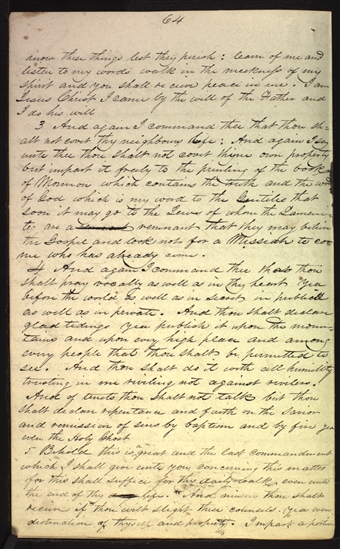 64
know these things lest they perish: learn of me and
listen to my words walk in the meekness of my
spirit and you shall have peace in me. I am
Jesus Christ I came by the will of the Father and
I do his will
3 And again I command thee that thou sh-
alt not covet thy neighbours Wife: And again I say
unto thee thou shalt not covet thine own property
but impart it freely to the printing of the book
of Mormon which contains the truth and the word
of God which is my word to the Gentiles that
soon it may go to the Jews of whom the Lamani-
tes are a remnant that they may believe
the Gospel and look not for a Messiah to co-
me who has already come.
4 And again I command thee that thou
shalt pray vocally as well as in thy heart Yea
before the world as well as in secret in publick
as well as in private. And thou shalt declare
glad tidings yea publish it upon the moun-
tains and upon every high place and among
every people that thou shalt be permitted to
see. And thou shalt do it with all humility
trusting in me reviling not against revilers.
And of tenets thou shalt not talk but thou
shalt declare repentance and faith on the Savior
and remission of sins by baptism and by fire yea
even the Holy Ghost
5 Behold this is great and the last commandment
which I shall give unto you concerning this matter
for this shall suffice for thy daily walk even unto
the end of thy life. And misery thou shalt
receive if thou wilt slight these counsels. Yea even
destruction of thyself and property. Impart a portion